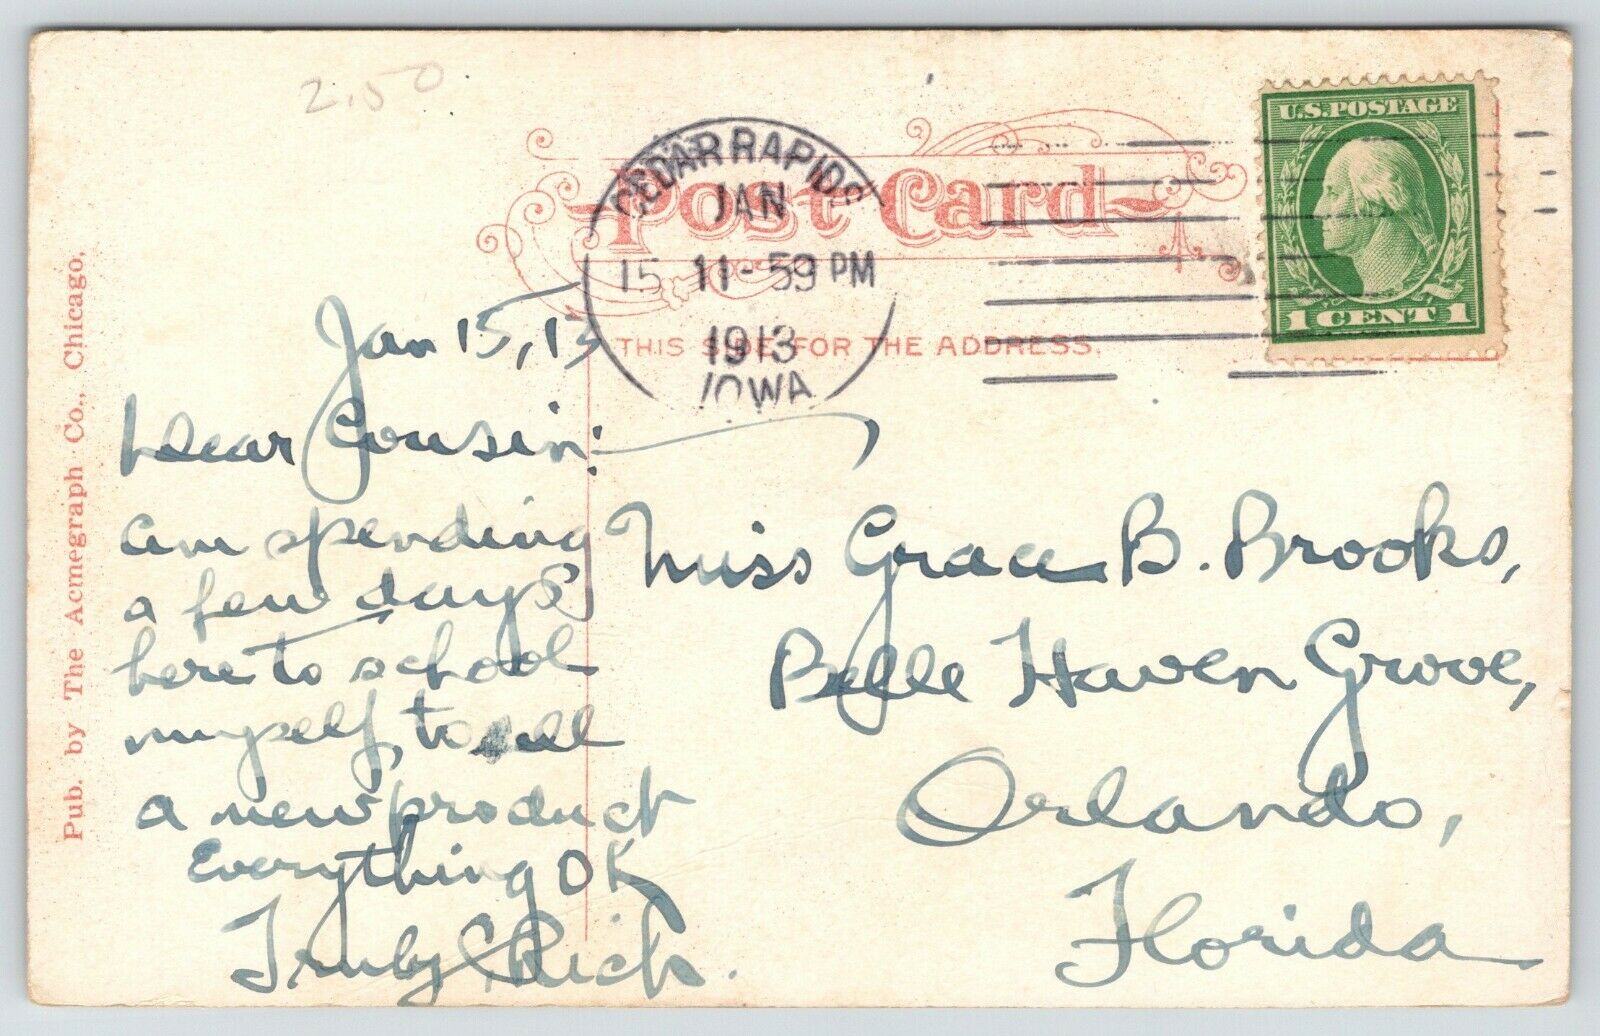 2.50
Post Card
THIS SIDE FOR THE ADDRESS.
CEDAR RAPIDS
JAN
15 11-59 PM
1913
IOWA
U.S. POSTAGE
1 CENT 1
Pub. by The Acmegraph Co., Chicago.
Jan 15, 13
Dear Cousin:
am spending
a few days
here to school
myself, to sell
a new product
Everything OK
Truly Rich.
Miss Grace B. Brooks,
Belle Haven Grove,
Orlando,
Florida